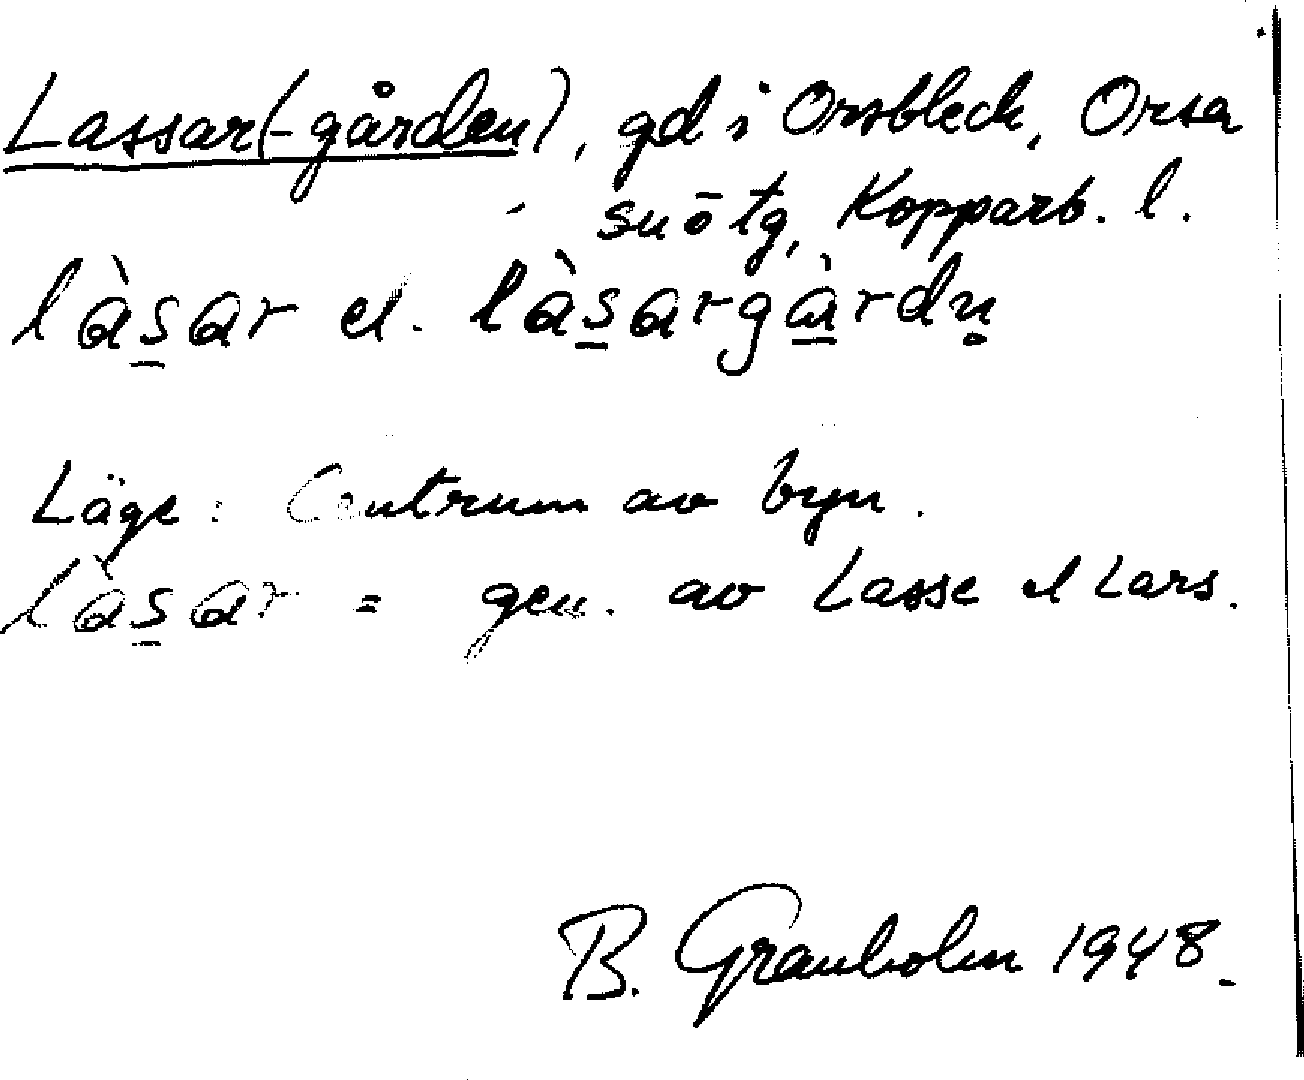 Lassar(-gården), gd i Orsbleck, Orsa
sn ō tg, Kopparb. l.
làs̲ar el. làs̲argå̲rdn̥
Läge: Centrum av byn.
làs̲ar = gen. av Lasse el Lars.
B. Granholm 1948.